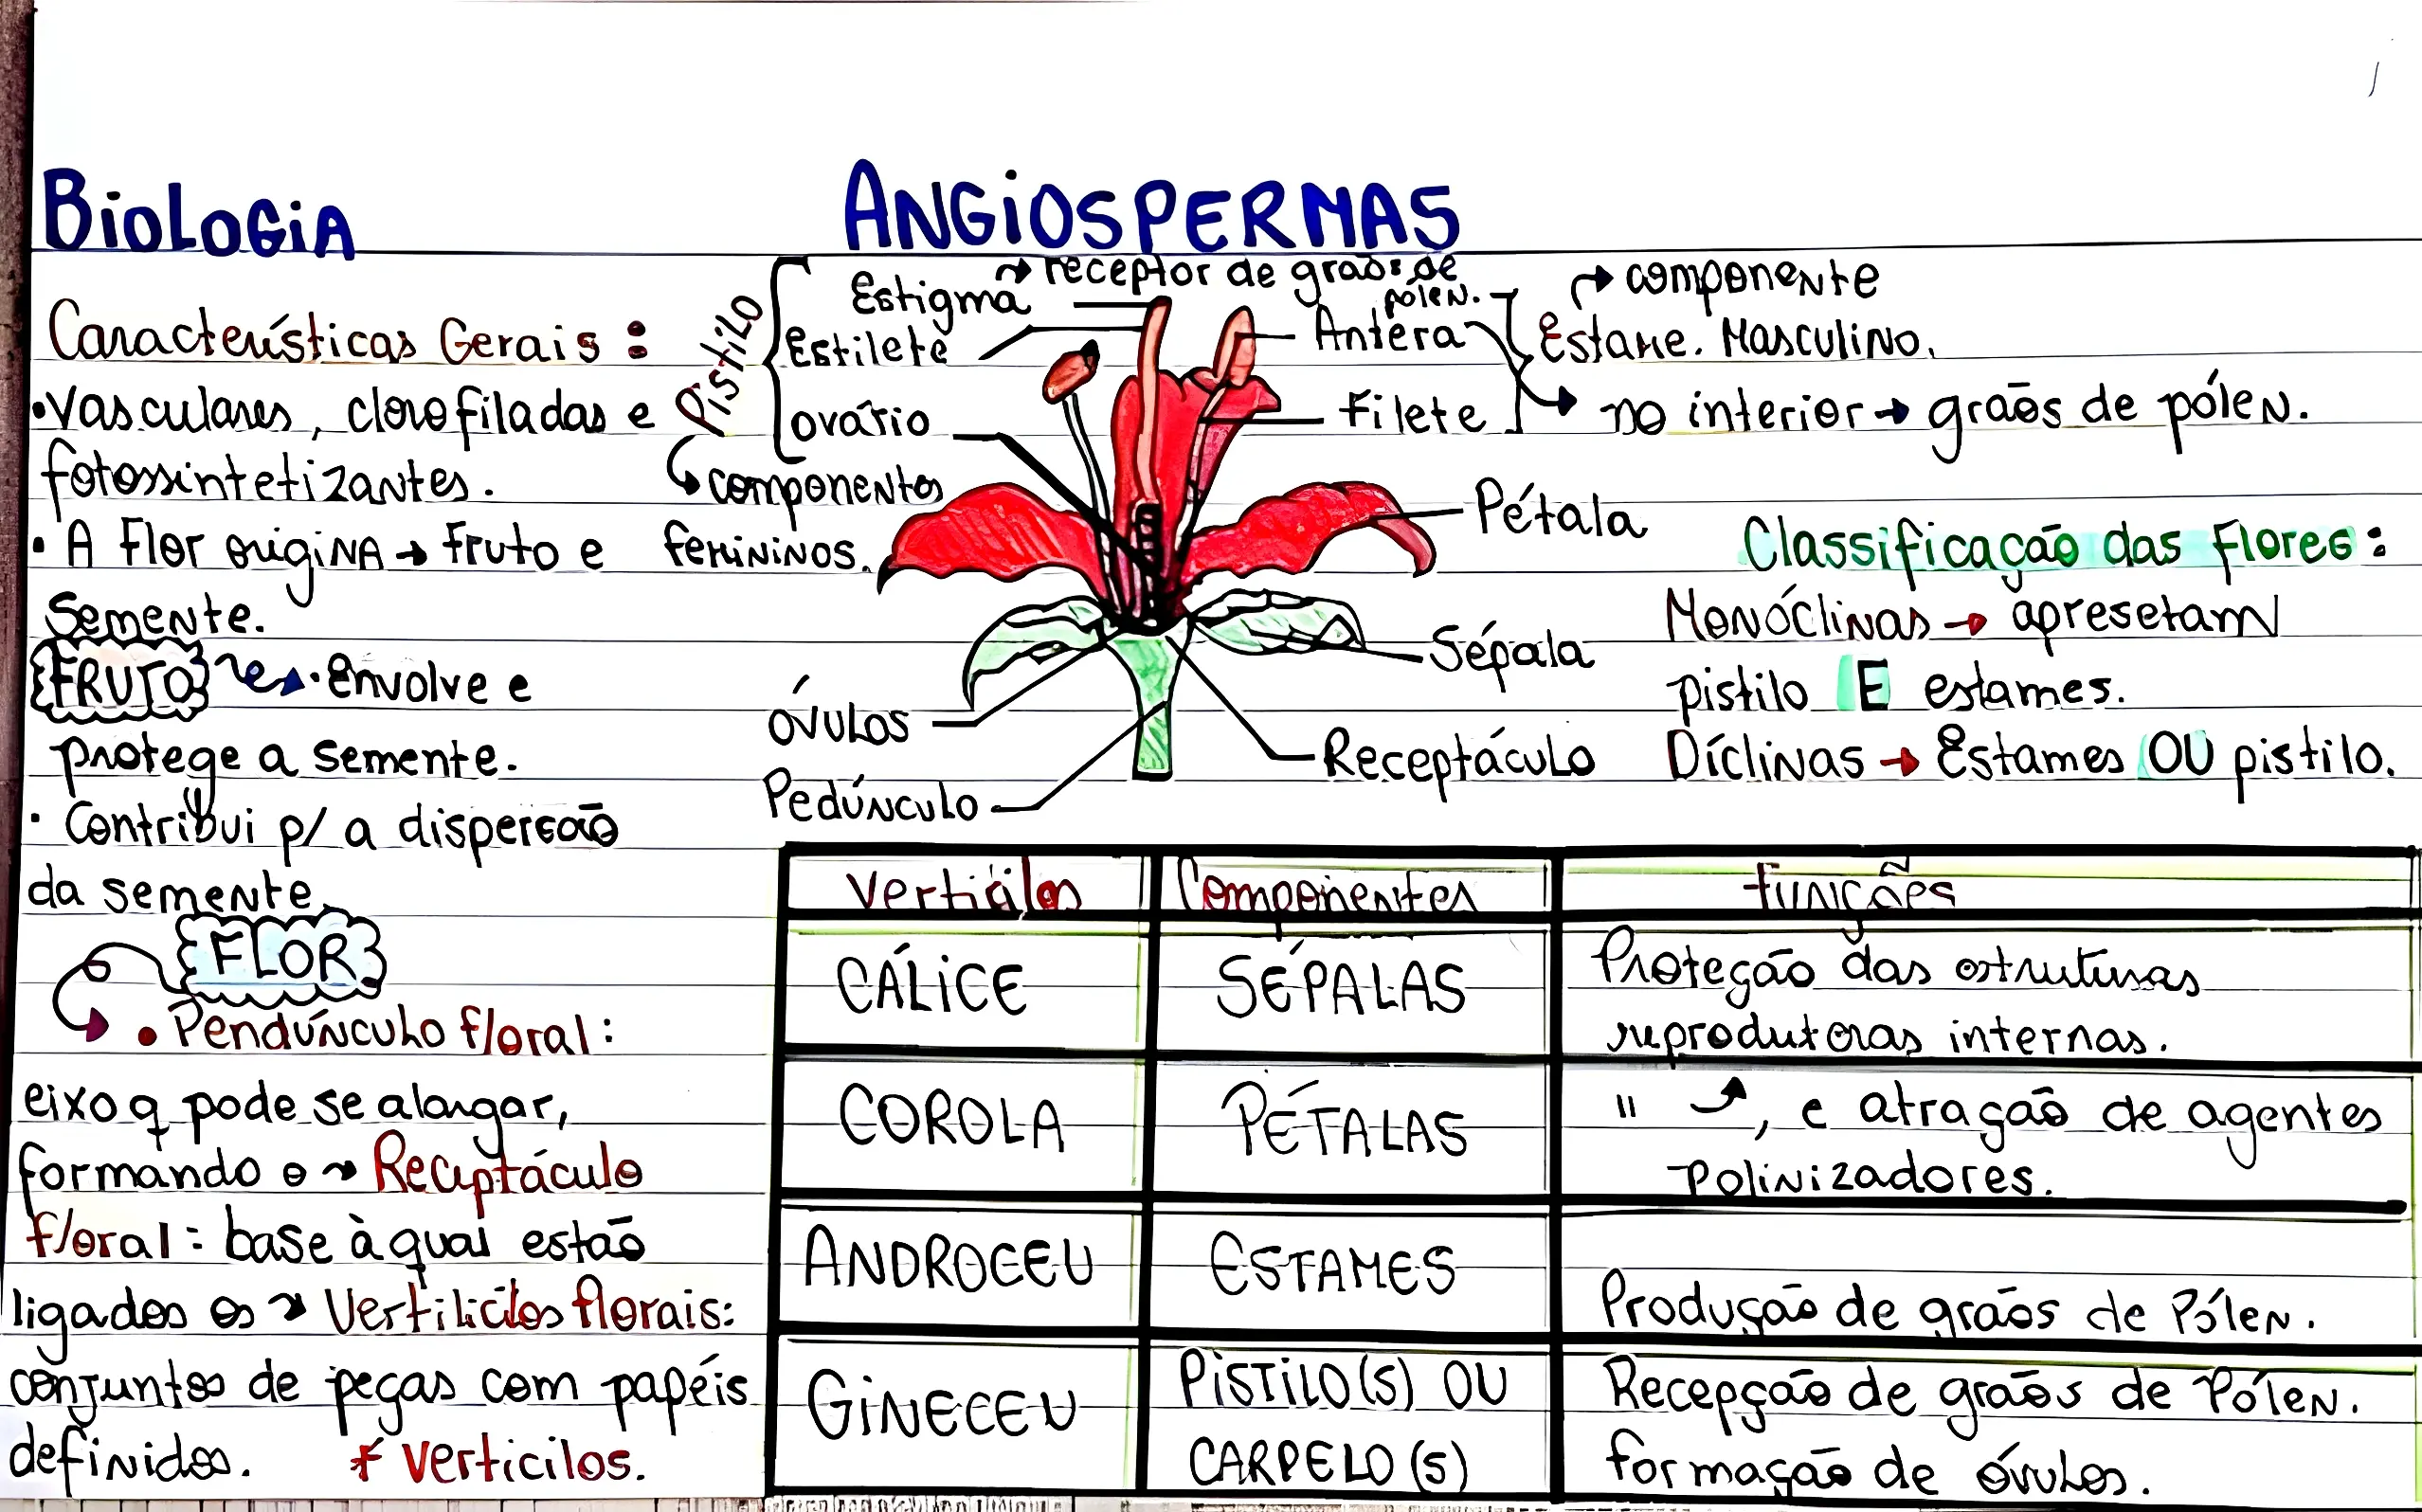 BioLoGiA
ANGiOSPERMAS
Características Gerais:
•vasculares, clorofiladas e
fotossintetizantes.
• A Flor origiNA → Fruto e
Semente.
FRUTO → •Envolve e
protege a semente.
• Contribui p/ a dispersão
da semente.
FLOR
• PendúNculo floral:
eixo q pode se alongar,
formando o → Receptáculo
floral: base à qual estão
ligados os → Vertilicilos florais:
conjuntos de peças com papéis
definidos. * verticilos.
PiSTiLO
Estigma → receptor de grãos de
pólen.
Estilete
ovário
↳ componentes
femininos.
Antera
Filete
Estame. → componente
Masculino.
→ no interior → grãos de pólen.
Pétala
Sépala
Receptáculo
óvulos
Pedúnculo
Classificação das Flores:
Monóclinas → apresetam
pistilo E estames.
Díclinas → Estames OU pistilo.
Verticilos Componentes funções
CÁLiCE SÉPALAS Proteção das estruturas
reprodutoras internas.
COROLA PÉTALAS " ⤴, e atração de agentes
Polinizadores.
ANDROCEU ESTAMES Produção de grãos de Pólen.
GiNECEU PiSTiLO(S) OU Recepção de grãos de Pólen.
CARPELO(S) formação de óvulos.